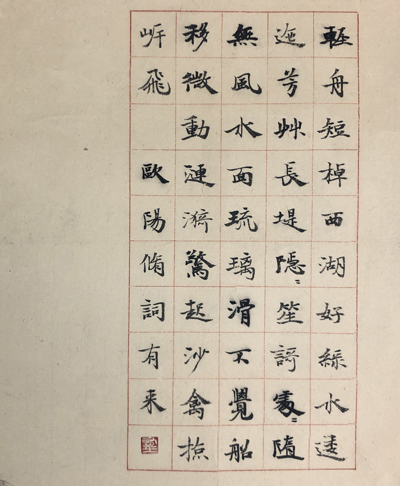 輕舟短棹西湖好綠水逶
迤芳艸長堤隱〻笙謌處〻隨
無風水面琉璃滑不覺船
移微動漣漪驚起沙禽掠
岸飛 歐陽脩詞有来